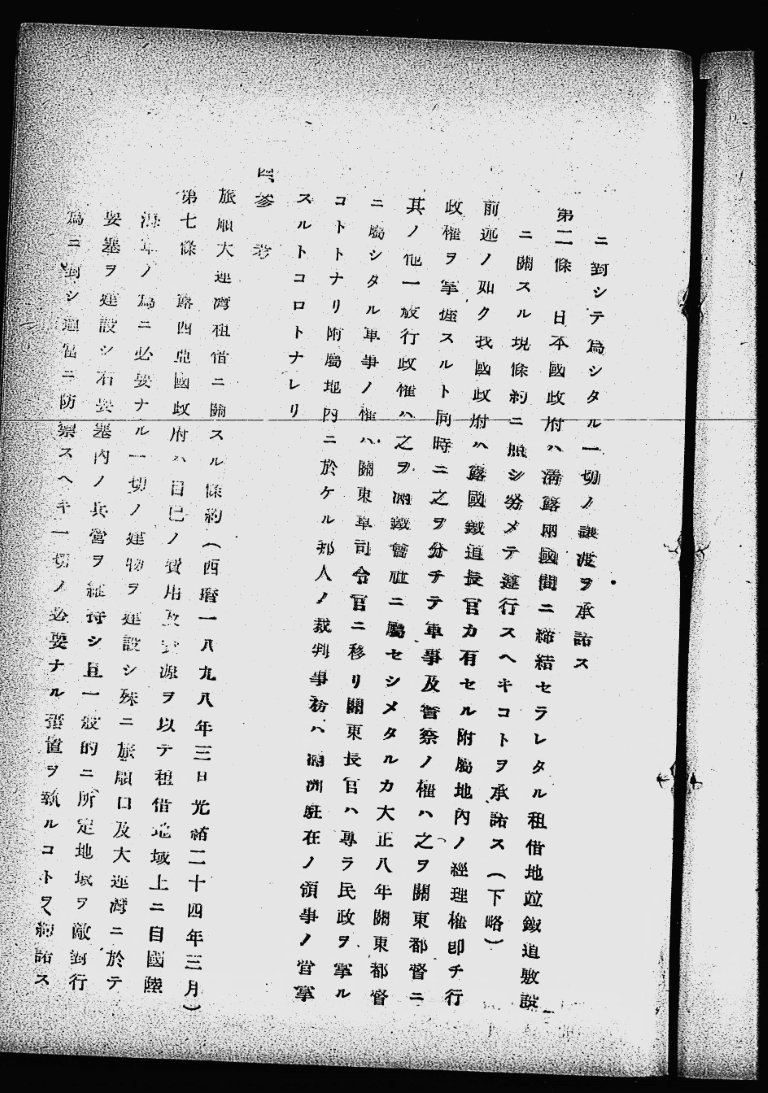 ニ對シテ爲シタル一切ノ讓渡ヲ承諾ス
第二條　日本國政府ハ淸露兩國間ニ締結セラレタル租借地竝鐵道敷設
ニ關スル現條約ニ照シ努メテ遂行スヘキコトヲ承諾ス（下略）
前述ノ如ク我國政府ハ露國鐵道長官カ有セル附屬地內ノ經理權卽チ行
政權ヲ掌握スルト同時ニ之ヲ分チテ軍事及警察ノ權ハ之ヲ關東都督ニ
其ノ他一般行政權ハ之ヲ滿鐵會社ニ屬セシメタルカ大正八年關東都督
ニ屬シタル軍事ノ權ハ關東軍司令官ニ移リ關東長官ハ專ラ民政ヲ掌ル
コトトナリ附屬地內ニ於ケル邦人ノ裁判事務ハ滿洲駐在ノ領事ノ管掌
スルトコロトナレリ
四參考
旅順大連灣租借ニ關スル條約（西曆一八九八年三日光緖二十四年三月）
第七條　露西亞國政府ハ自己ノ費用及資源ヲ以テ租借地域上ニ自國陸
海軍ノ爲ニ必要ナル一切ノ建物ヲ建設シ殊ニ旅順口及大連灣ニ於テ
要塞ヲ建設シ右要塞內ノ兵營ヲ維持シ且一般的ニ所定地域ヲ敵對行
爲ニ對シ適當ニ防禦スヘキ一切ノ必要ナル措置ヲ執ルコトヲ約諾ス